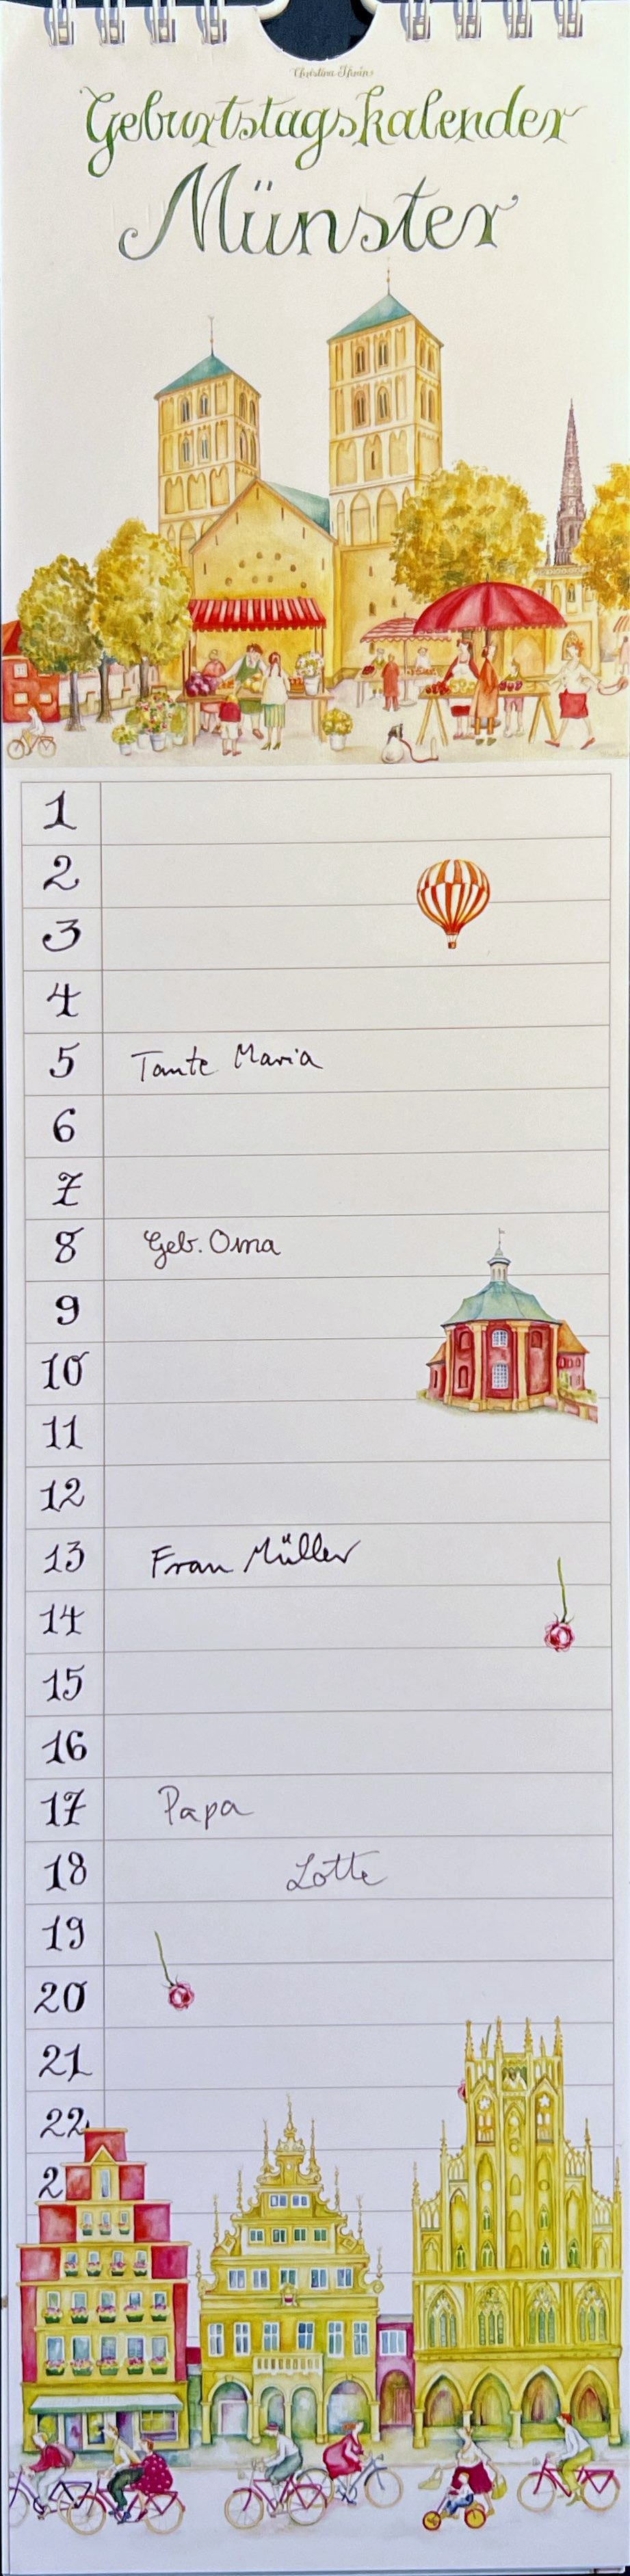 Christina Thrän
Geburtstagskalender
Münster
1
2
3
4
5 Tante Maria
6
7
8 Geb. Oma
9
10
11
12
13 Frau Müller
14
15
16
17 Papa
18 Lotte
19
20
21
22
2